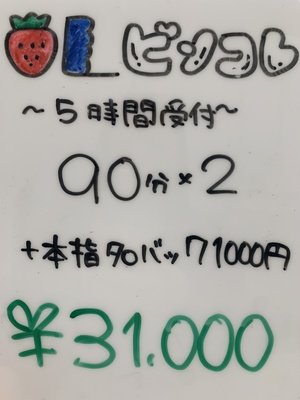 ビンコレ
~5時間受付~
90分×2
+本指90バック1000円
¥31.000